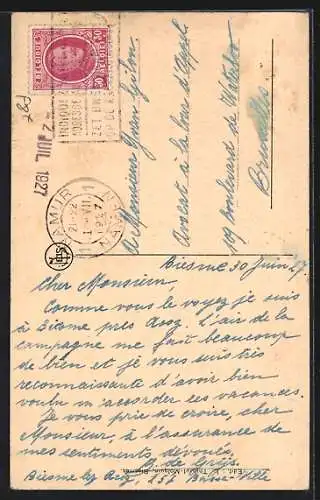 BELGIQUE
BELGIË
30 30
- 2 JUIL 1927
NAMUR 1
21-22
1 VII
1927
NAMEN 1
A Monsieur
Avocat à la Cour d'Appel
109 boulevard de Waterloo
Bruxelles
Biesme 30 Juin 27
Cher Monsieur,
Comme vous le voyez je suis
à Biesme près Acoz. L'air de la
campagne me fait beaucoup
de bien et je vous suis très
reconnaissante d'avoir bien
voulu m'accorder les vacances.
Je vous prie de croire, cher
Monsieur, à l'assurance de
mes sentiments dévoués.
Biesme lez Acoz, 254 Basse-Ville